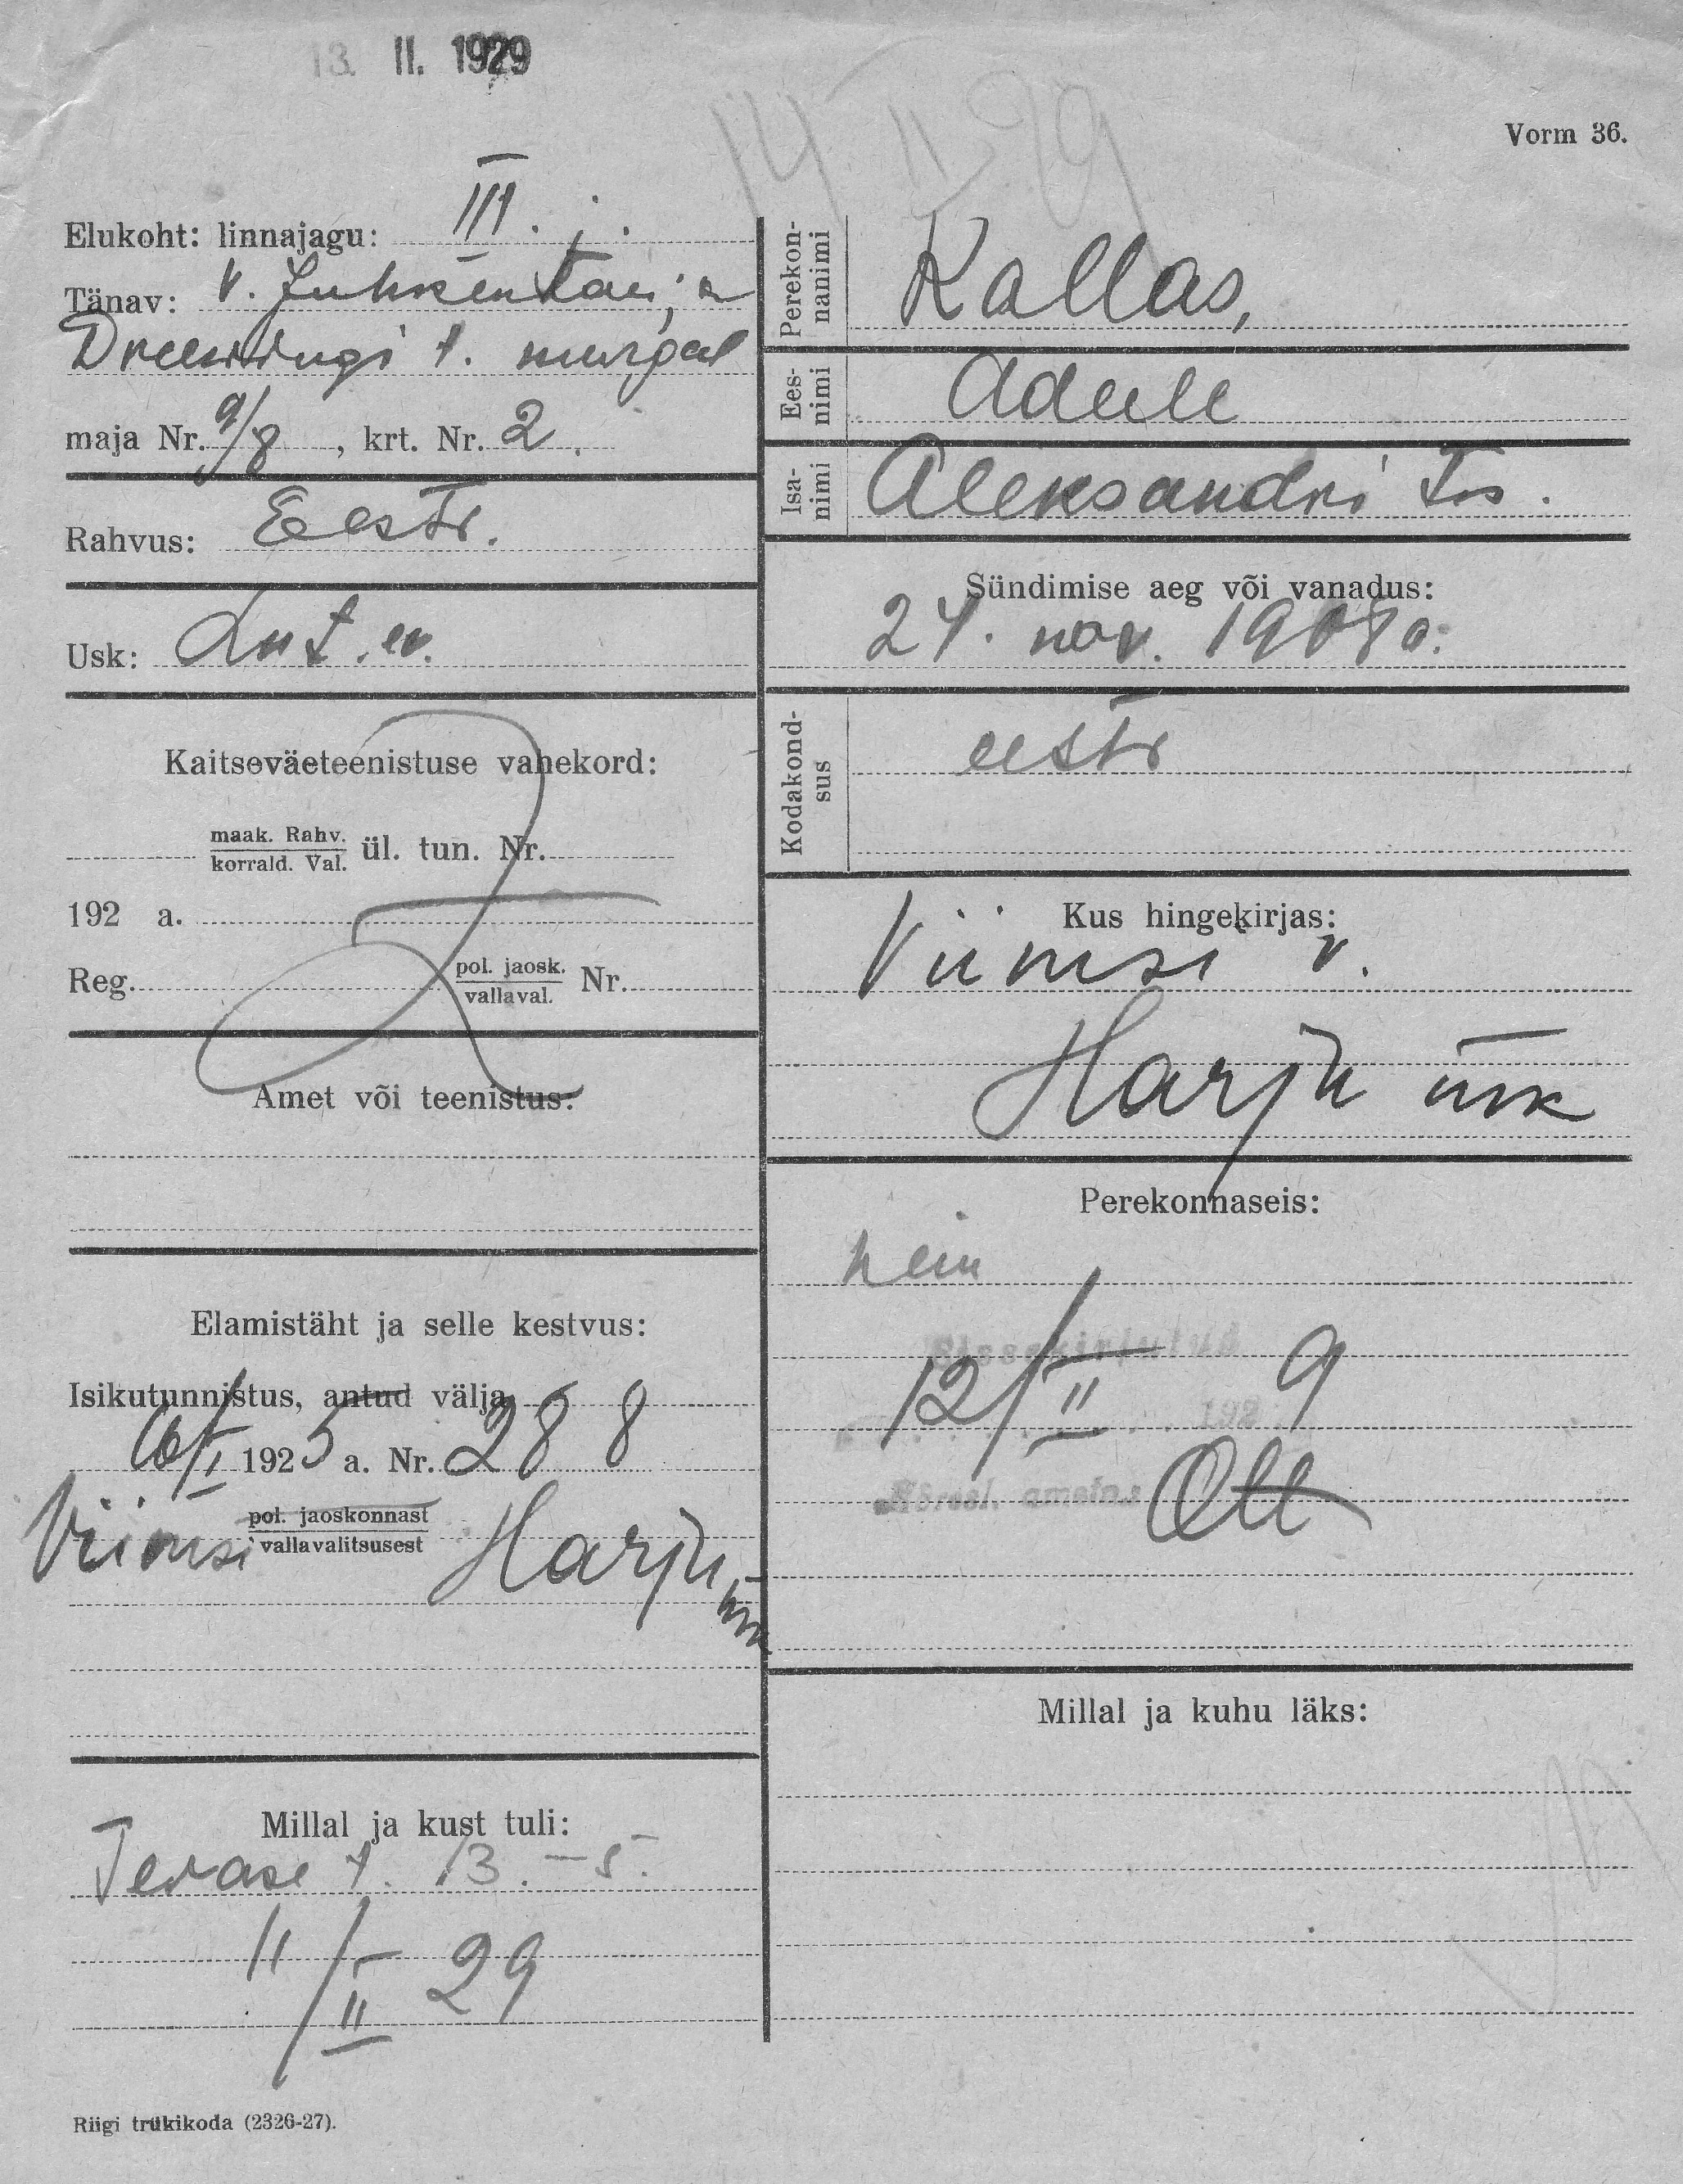 13. II. 1929
14 II 29
Vorm 36.
Elukoht: linnajagu: III. j.
Tänav: V. Juhkentali ja
t. nurgal
maja Nr. 9/8, krt. Nr. 2.
Rahvus: Eesti.
Usk: Lut. ev.
Kaitseväeteenistuse vahekord:
maak. Rahv.
korrald. Val. ül. tun. Nr.
192 a.
Reg. pol. jaosk.
vallaval. Nr.
Amet või teenistus:
Elamistäht ja selle kestvus:
Isikutunnistus, antud välja
16/I 1925 a. Nr. 288
Viimsi pol. jaoskonnast
vallavalitsusest Harju mk
Millal ja kust tuli:
Terase t. 13.–5.
11/II 29
Riigi trükikoda (2326-27).
Perekon-
nanimi Kallas,
Ees-
nimi Adele
Isa-
nimi Aleksandri t.
Sündimise aeg või vanadus:
24. nov. 1908 a.
Kodakond-
sus eesti
Kus hingekirjas:
Viimsi v.
Harju mk
Perekonnaseis:
Sissekirjutud
12/II 192 9
ametn. Ott
Millal ja kuhu läks: